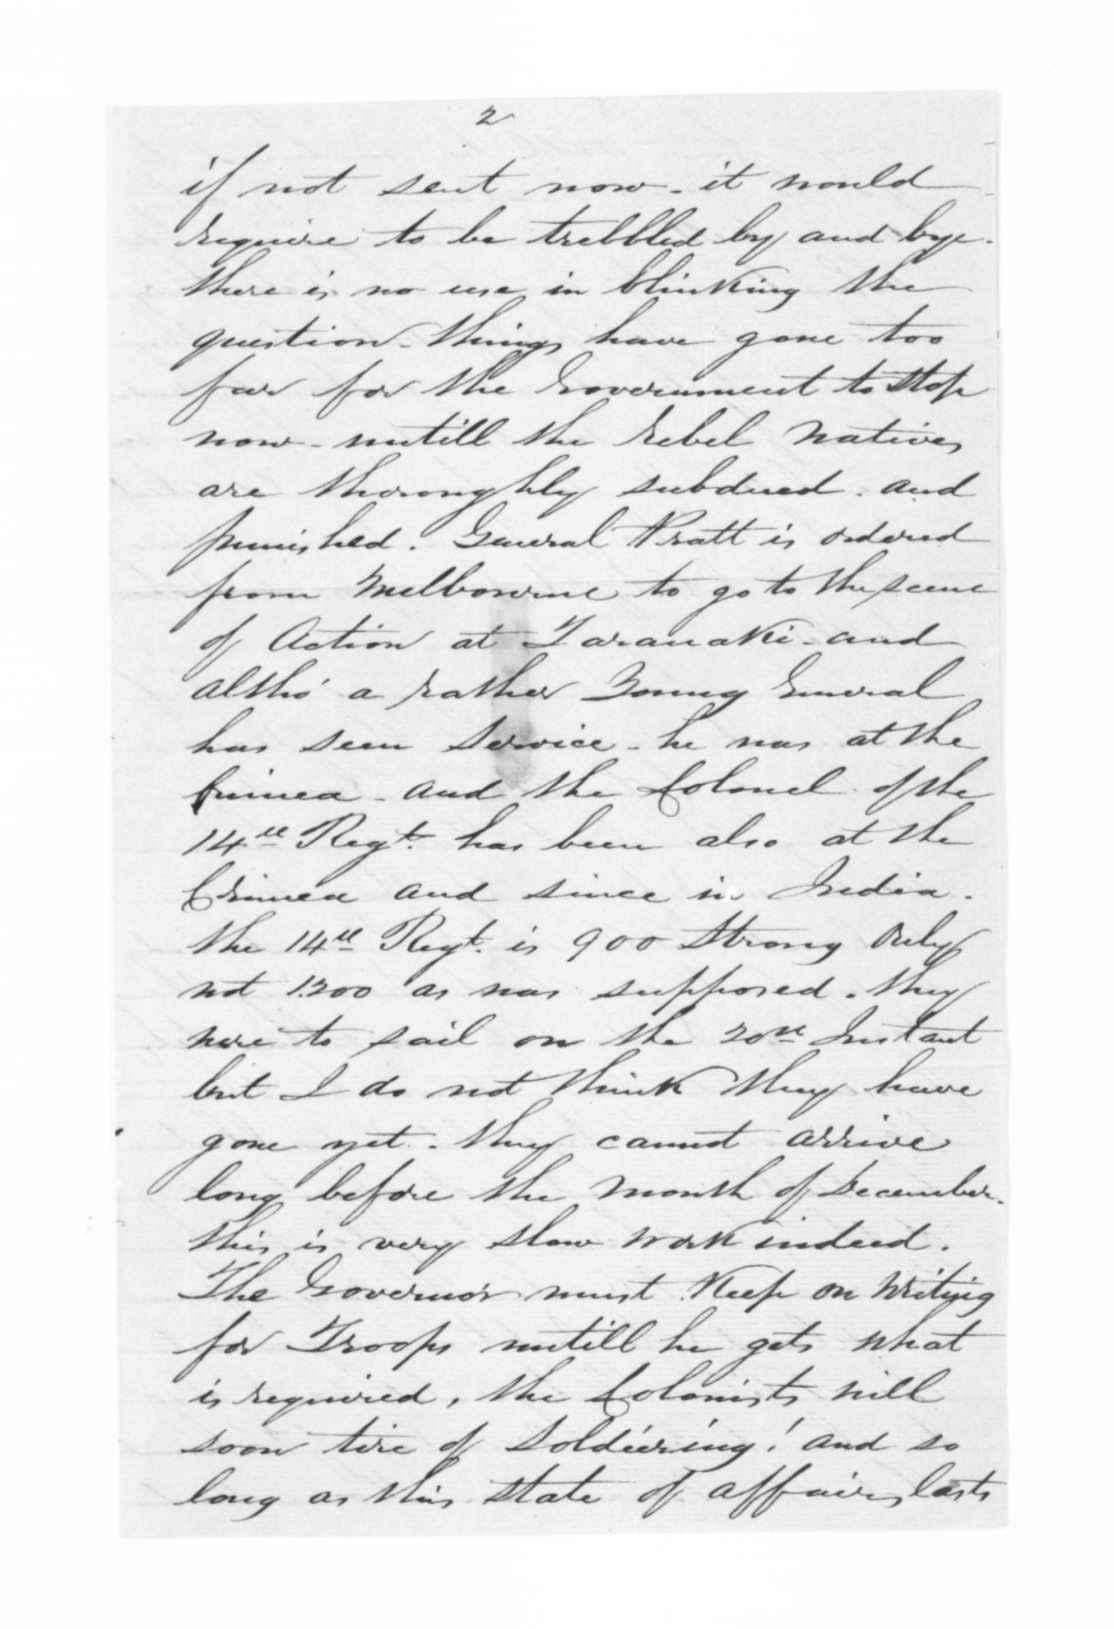 2
if not sent now - it would
require to be trebbled by and bye.
there is no use in blinking the
question - things have gone too
far for the Government to stop
now - untill the rebel Natives
are thoroughly subdued. and
punished. General Pratt is ordered
from Melbourne to go to the scene
of Action at Taranaki - and
altho' a rather Young General
has seen Service - he was at the
Crimea - and the Colonel of the
14th Regt. has been also at the
Crimea and since in India.
the 14th Regt. is 900 strong Only
not 1200 as was supposed. they
were to sail on the 20th Instant
but I do not think they have
gone yet. they cannot arrive
long before the month of December.
this is very slow work indeed.
The Governor must Keep on Writing
for Troops untill he gets what
is required, the Colonists will
soon tire of soldiering! and so
long as this state of affairs lasts